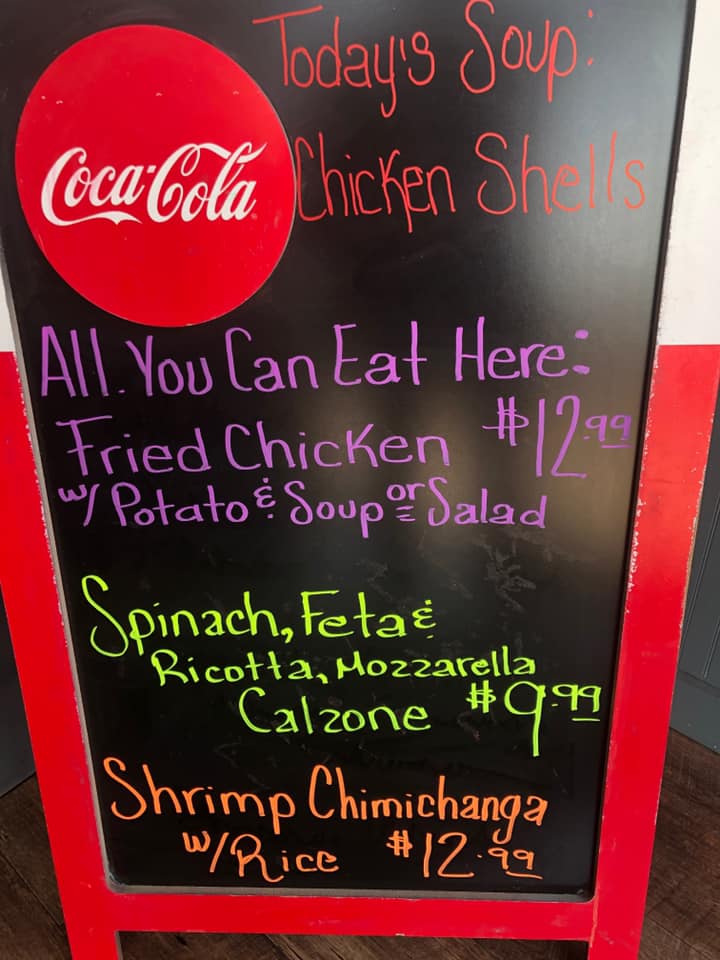 Today's Soup:
Coca-Cola
Chicken Shells
All You Can Eat Here:
Fried Chicken $12.99
w/ Potato & Soup or Salad
Spinach, Feta &
Ricotta, Mozzarella
Calzone $9.99
Shrimp Chimichanga
w/Rice $12.99